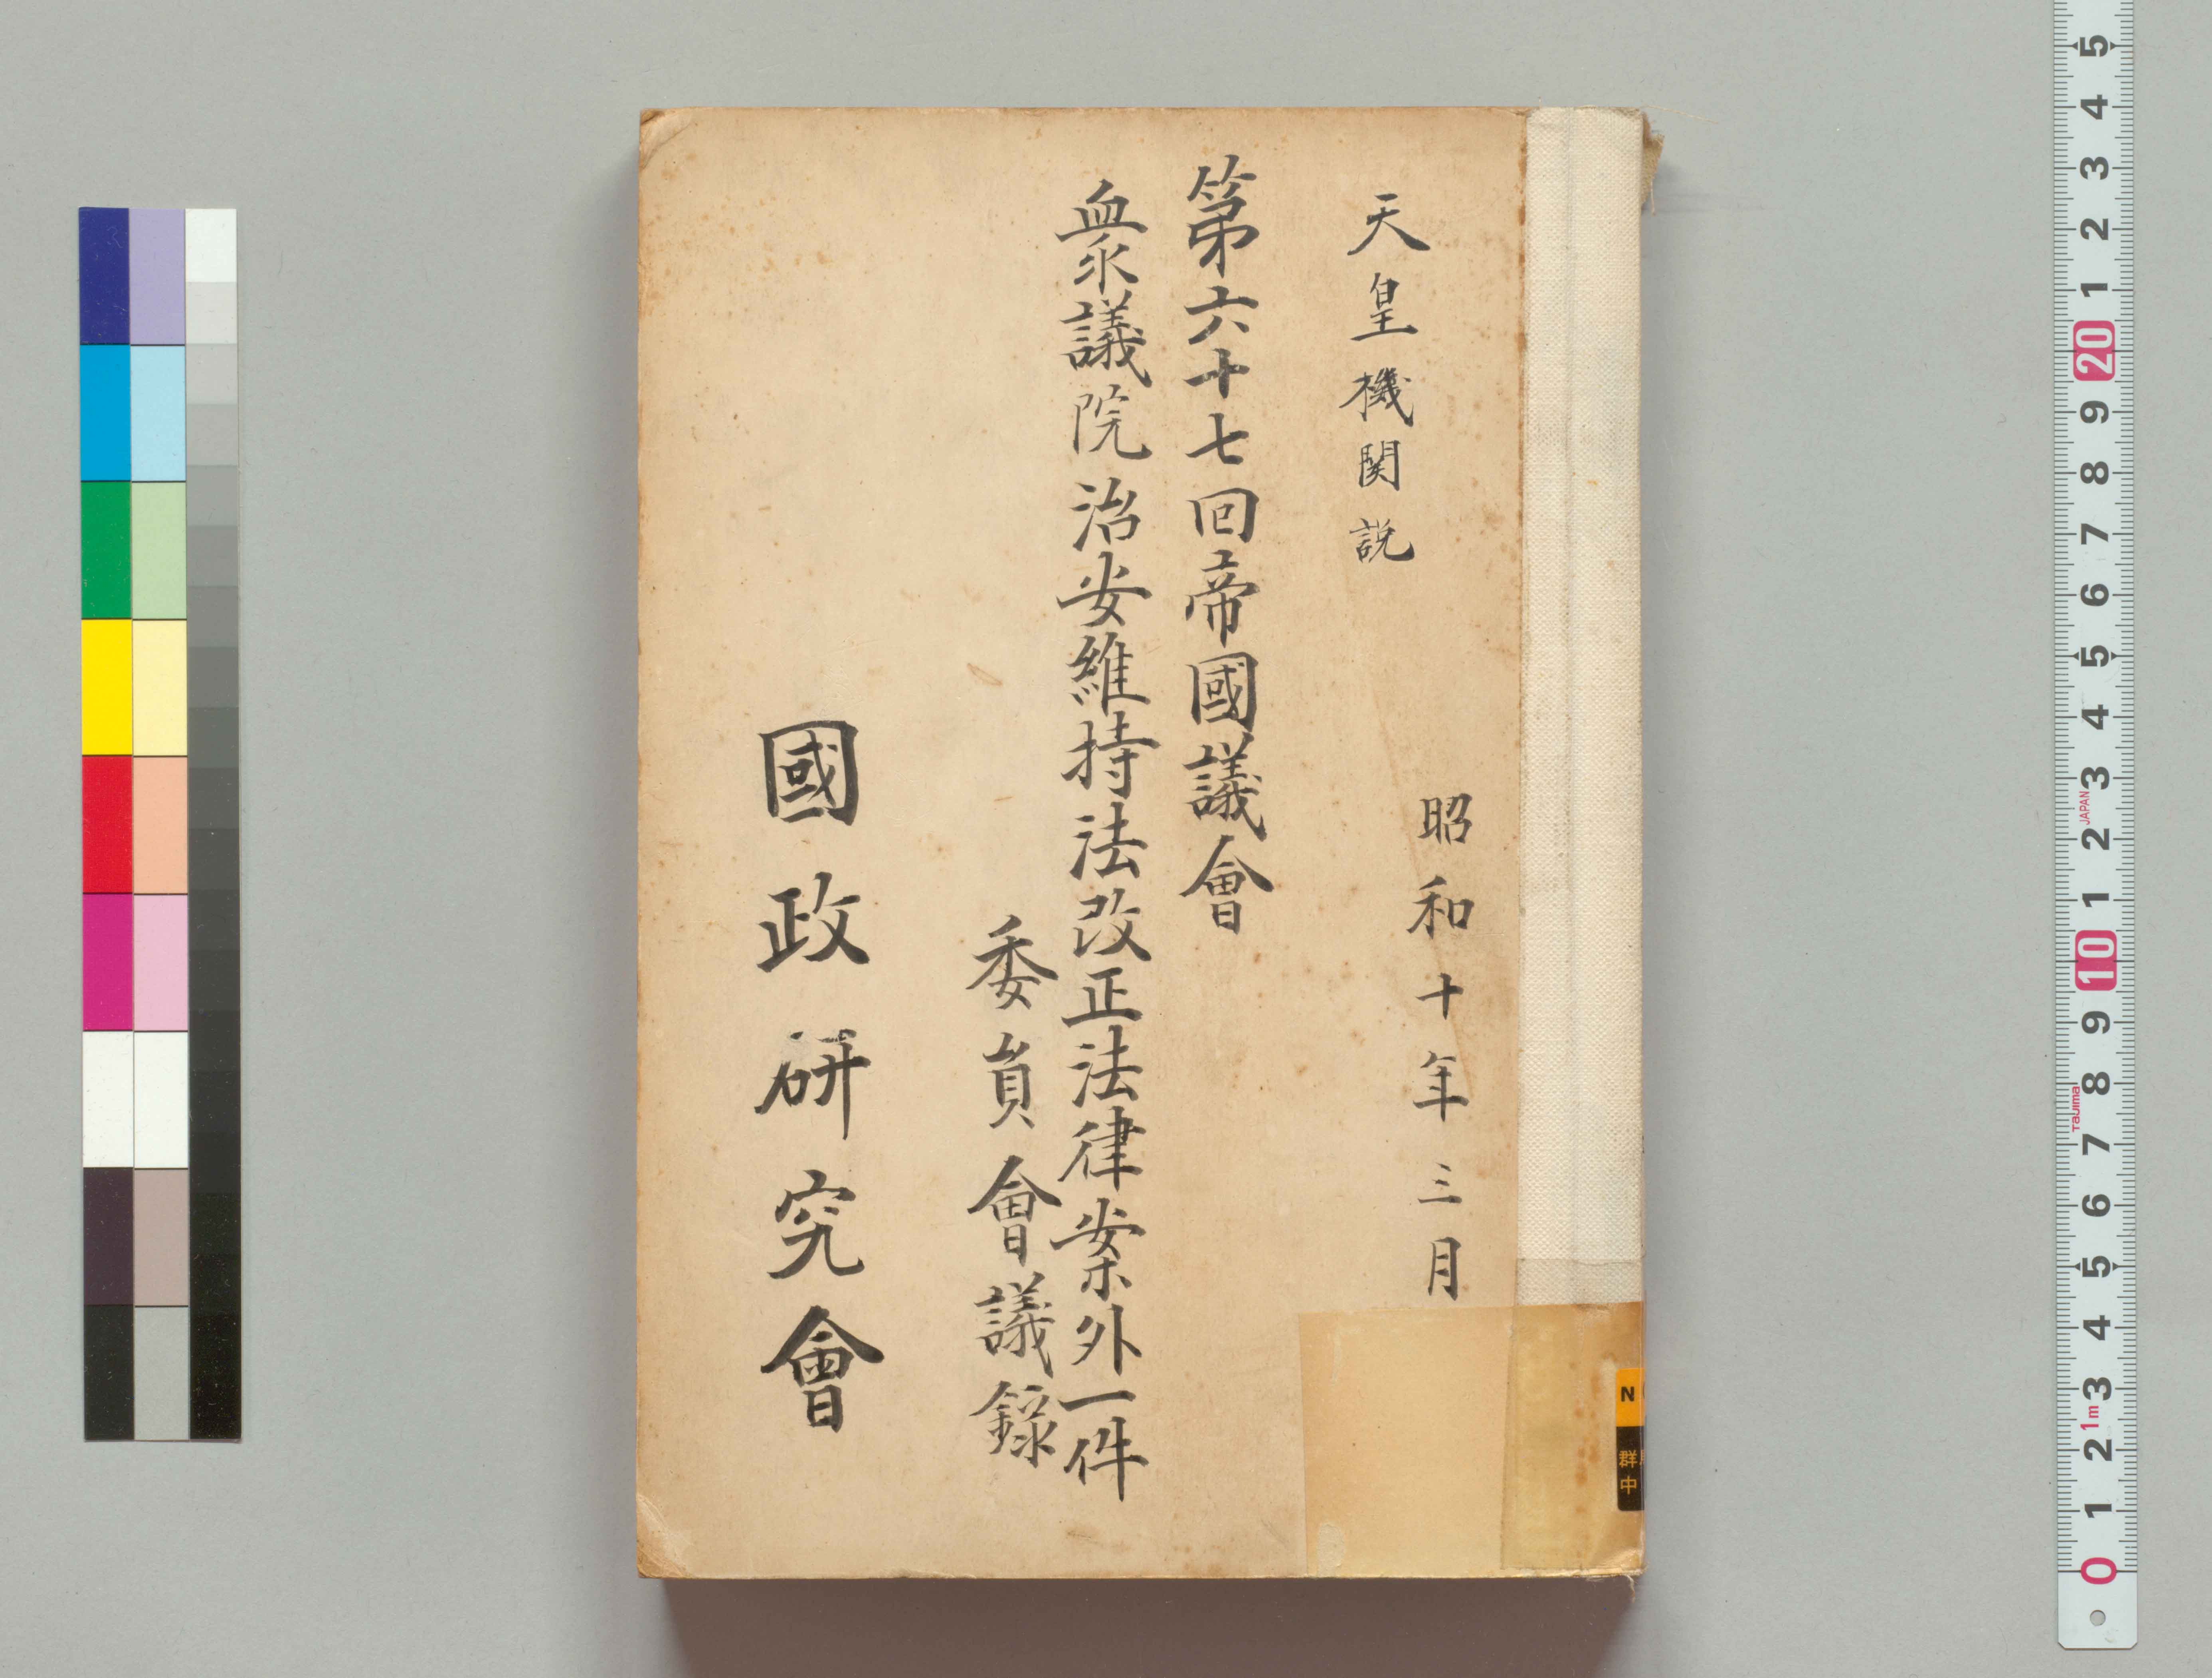 昭和十年三月
天皇機関説
第六十七回帝國議會
衆議院治安維持法改正法律案外一件
委員會議録
國政研究會
N
群
中
5
4
3
2
1
20
9
8
7
6
5
4
3
JAPAN
2
1
10
9
8
Tajima
7
6
5
4
3
1m
2
1
0